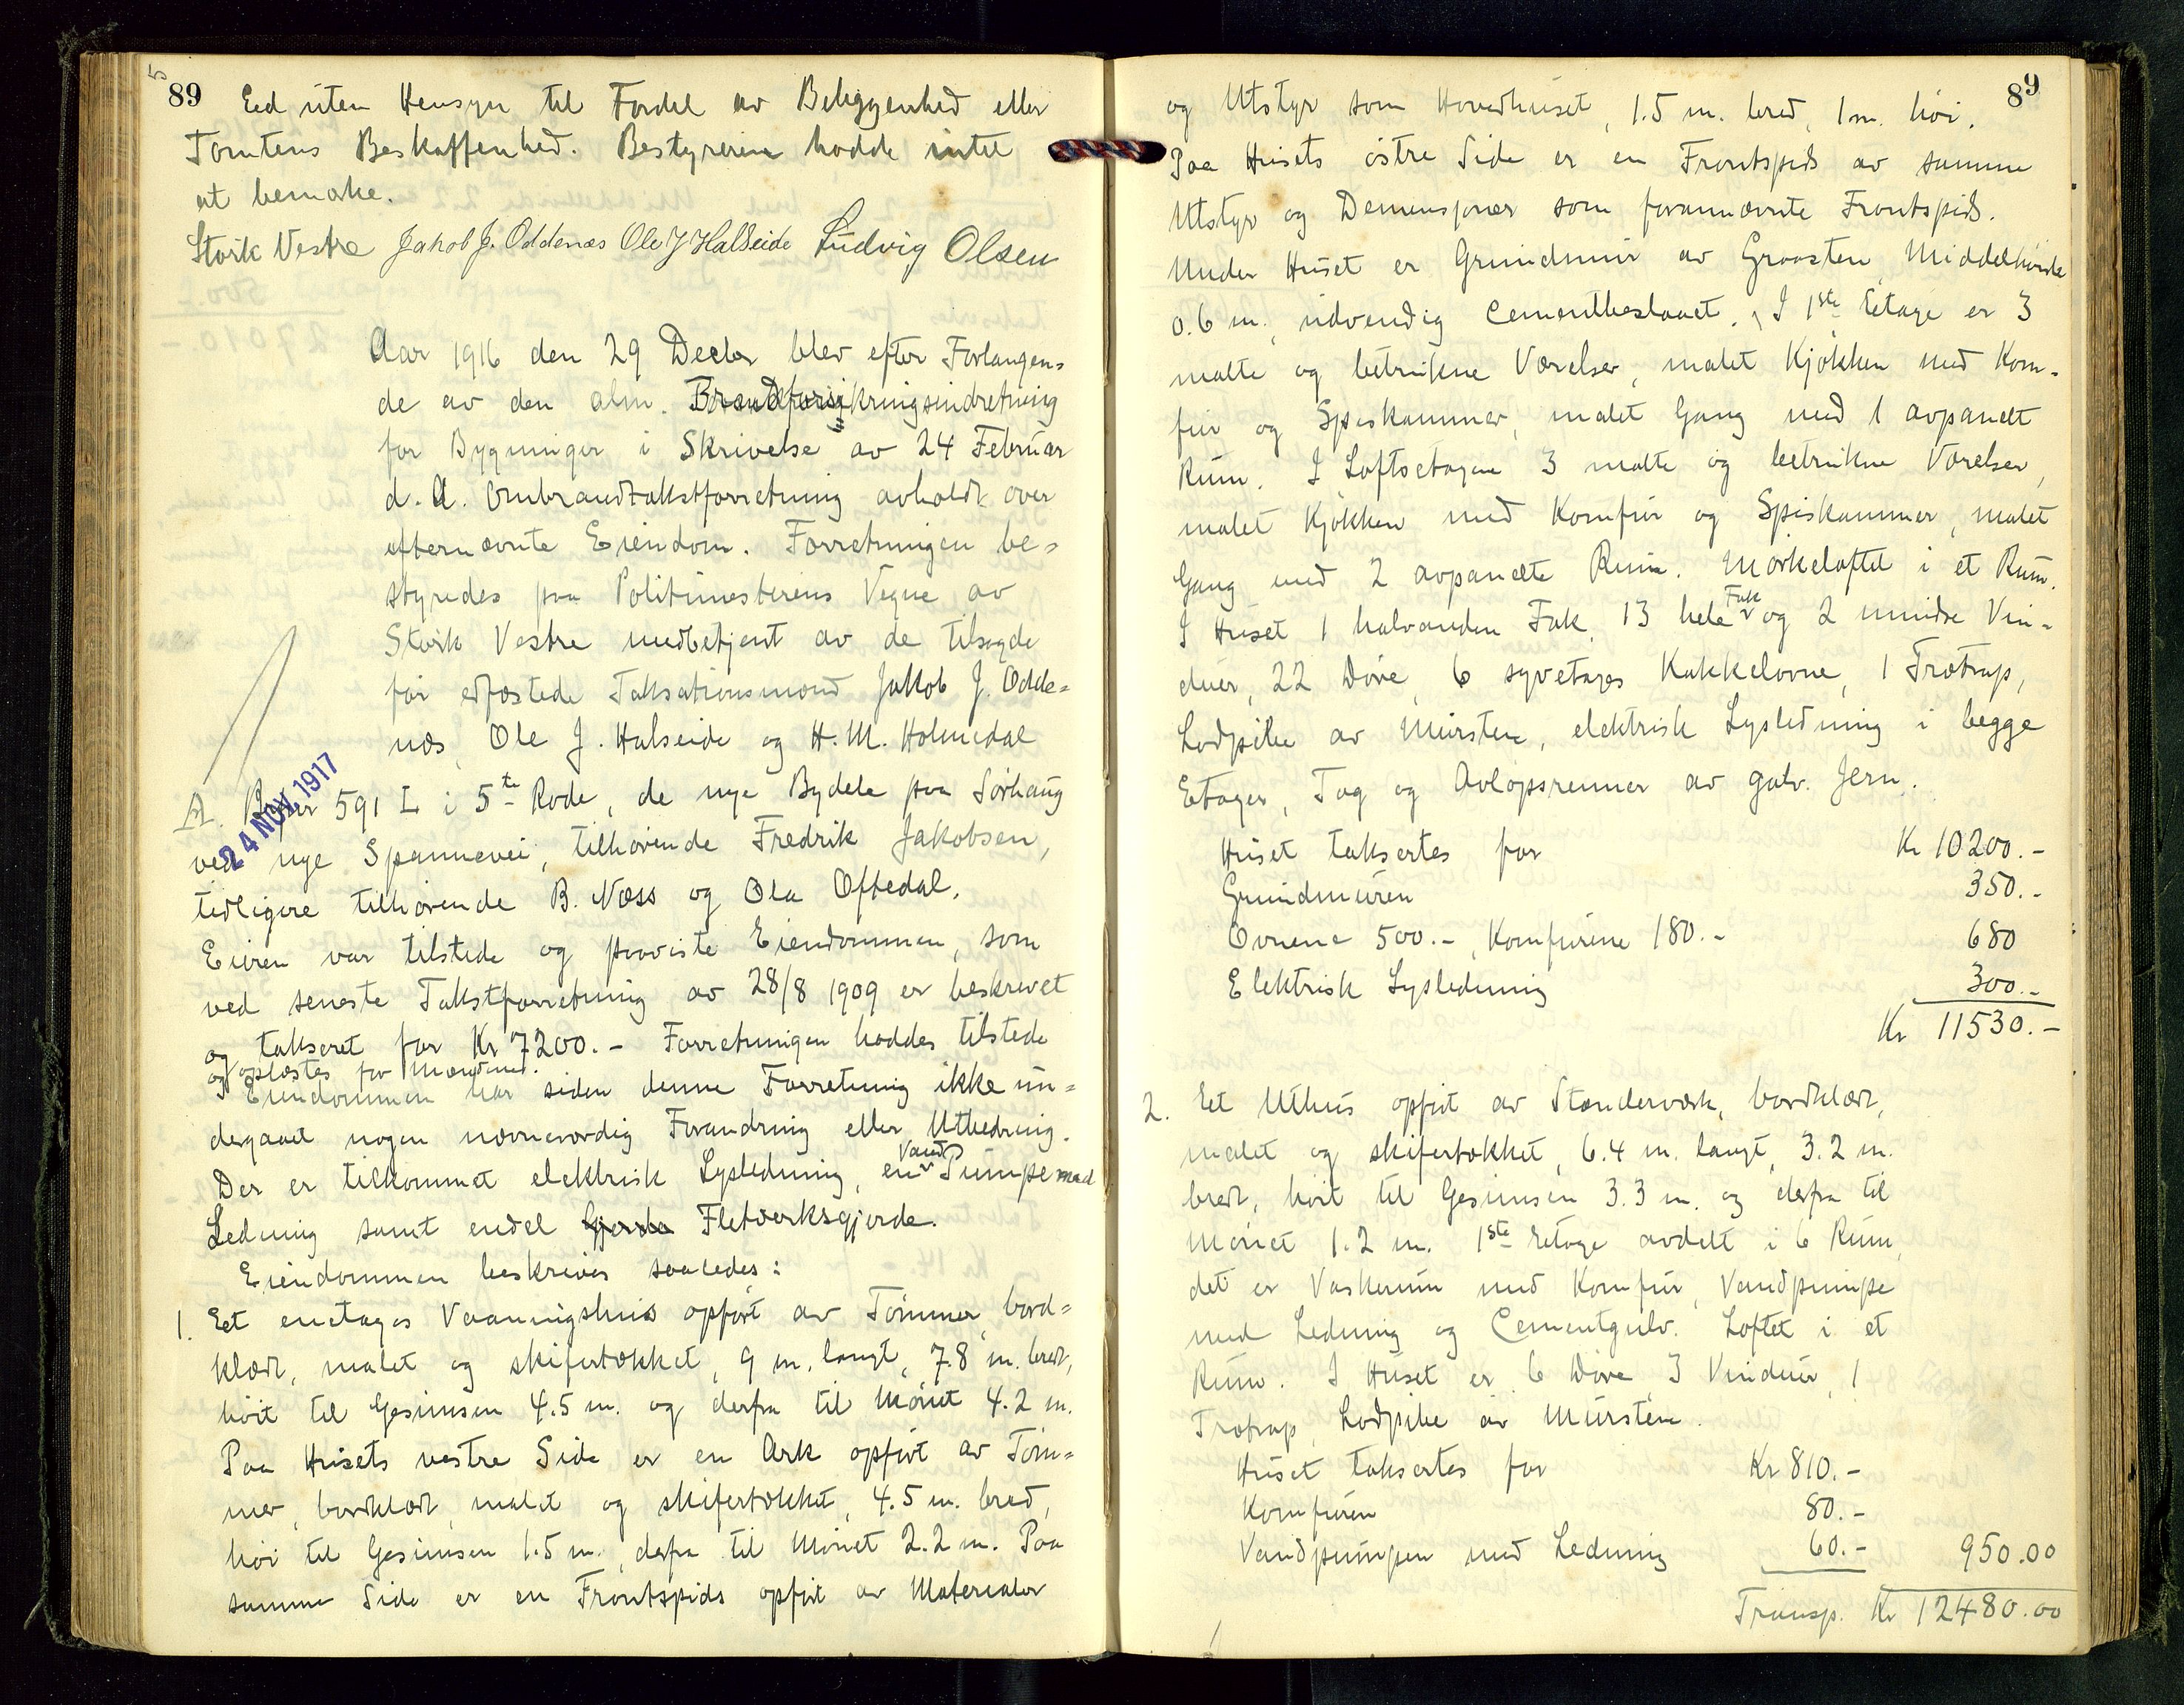 89
Eed uten Hensyn til Fordel av Beliggenhed eller
Tomtens Beskaffenhed. Bestyreren hadde intet
at bemærke.
Størk Vestre Jakob J. Oddenæs Ole J Halseide Ludvig Olsen
Aar 1916 den 29 Decbr blev efter Forlangen=
de av den alm. Brandforsikringsindretning
for Bygninger i Skrivelse av 24 Februar
d. A. Ombrandtakstforretning avholdt over
efternævnte Eiendom. Forretningen be=
styredes paa Politimesterens Vegne av
Størk Vestre medbetjent av de tilsagde
før edfæstede Taksationsmænd Jakob J. Odde=
næs, Ole J. Halseide og H. M. Holmedal
24 NOV. 1917
A. 591 L i 5te Rode, de nye Bydele paa Sørhaug
ved nye Spannevei, tilhørende Fredrik Jakobsen,
tidligere tilhørende B. Næss og Ola Oftedal.
Eieren var tilstede og paaviste Eiendommen, som
ved seneste Takstforretning av 28/8 1909 er beskrevet
og takseret for Kr 7200.- Forretningen haddes tilstede
og oplæstes for Mændene.
Eiendommen har siden denne Forretning ikke un=
dergaaet nogen nævneværdig Forandring eller Utbedring.
Der er tilkommet elektrisk Lysledning, en Vand Pumpe med
Ledning samt endel Gjerde Fletværksgjerde.
Eiendommen beskrives saaledes:
1. Eet enetages Vaaningshus opført av Tømmer, bord=
klædt, malet og skifertækket, 9 m. langt, 7.8 m. bredt,
høit til Gesimsen 4.5 m. og derfra til Mønet 4.2 m.
Paa Husets vestre Side er en Ark opført av Tøm=
mer, bordklædt, malet og skifertækket, 4.5 m. bred,
høi til Gesimsen 1.5 m., derfra til Mønet 2.2 m. Paa
samme Side er en Frontspids opført av Materialer
89
og Utstyr som Hovedhuset, 1.5 m. bred, 1 m. høi.
Paa Husets østre Side er en Frontspids av samme
Utstyr og Demensjoner som forannævnte Frontspids.
Under Huset er Grundmur av Graasten, Middelhøide
0.6 m., udvendig Cementbeslaaet. I 1ste Etage er 3
malte og betrukne Værelser, malet Kjøkken med Kom=
fur og Spiskammer, malet Gang med 1 avpanelt
Rum. I Loftsetagen 3 malte og betrukne Værelser,
malet Kjøkken med Komfur og Spiskammer, malet
Gang med 2 avpanelte Rum. Mørkeloftet i et Rum.
I Huset 1 halvanden Fak, 13 hele Fak og 2 mindre Vin=
duer, 22 Døre, 6 syvetages Kakkelovne, 1 Trætrap,
Lodpibe av Mursten, elektrisk Lysledning i begge
Etager, Tag og Avløpsrenner av galv. Jern.
Huset taksertes for Kr 10200.-
Grundmuren 350.-
Ovnene 500.-, Komfurene 180.- 680
Elektrisk Lysledning 300.-
Kr 11530.-
2. Eet Uthus opført av Stænderværk, bordklædt,
malet og skifertækket, 6.4 m. langt, 3.2 m.
bredt, høit til Gesimsen 3.3 m. og derfra til
Mønet 1.2 m. 1ste Etage avdelt i 6 Rum,
det er Vaskerum med Komfur, Vandpumpe
med Ledning og Cementgulv. Loftet i et
Rum. I Huset er 6 Døre, 3 Vinduer, 1
Trætrap, Lodpibe av Mursten.
Huset taksertes for Kr 810.-
Komfuren 80.-
Vandpumpen med Ledning 60.- 950.00
Transp. Kr 12480.00